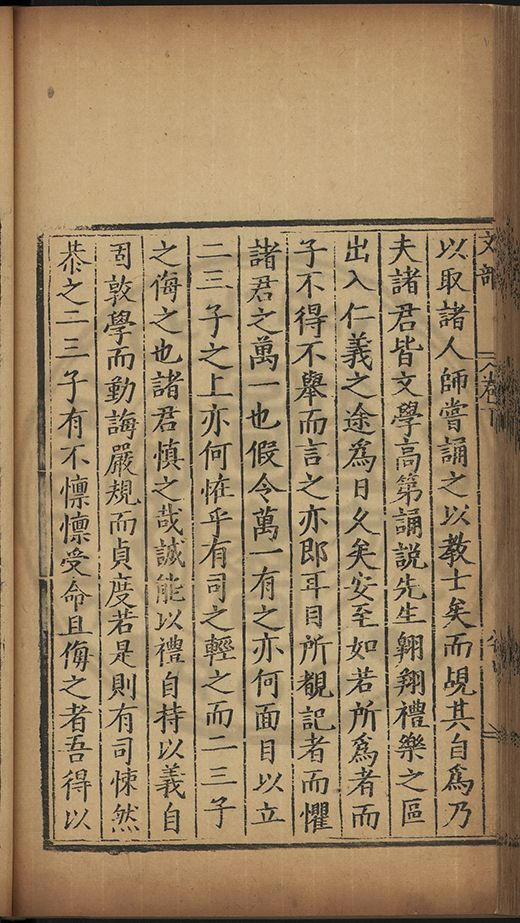 文部
卷下
以取諸人師嘗誦之以教士矣而覘其自爲乃
夫諸君皆文學高第誦説先生翱翔禮樂之區
出入仁義之途爲日久矣安至如若所爲者而
子不得不舉而言之亦即耳目所覩記者而懼
諸君之萬一也假令萬一有之亦何面目以立
二三子之上亦何恠乎有司之輕之而二三子
之侮之也諸君慎之哉誠能以禮自持以義自
固敦學而動誨嚴規而貞度若是則有司悚然
恭之二三子有不懍懍受命且侮之者吾得以